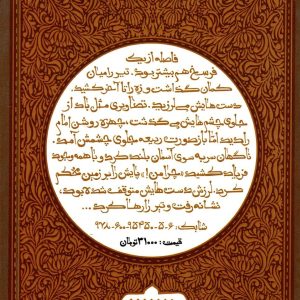 فاصله از یک
فرسخ هم بیشتر بود. تیر را میان
کمان گذاشت و زه را تا آخر کشید.
دست‌هایش می‌لرزید. تصاویری مثل باد از
جلوی چشم‌هایش می‌گذشت، چهره روشن امام
را دید اما باز صورت ربیعه جلوی چشمش آمد.
ناگهان سر به سوی آسمان بلند کرد و با همه وجود
فریاد کشید: «چرا من؟» پایش را بر زمین محکم
کرد. لرزش دست‌هایش متوقف شده بود.
نشانه رفت و تیر را رها کرد...
شابک: ۹۷۸-۶۰۰-۹۵۴۵۰-۵-۶
قیمت: ۳۱۰۰۰ تومان